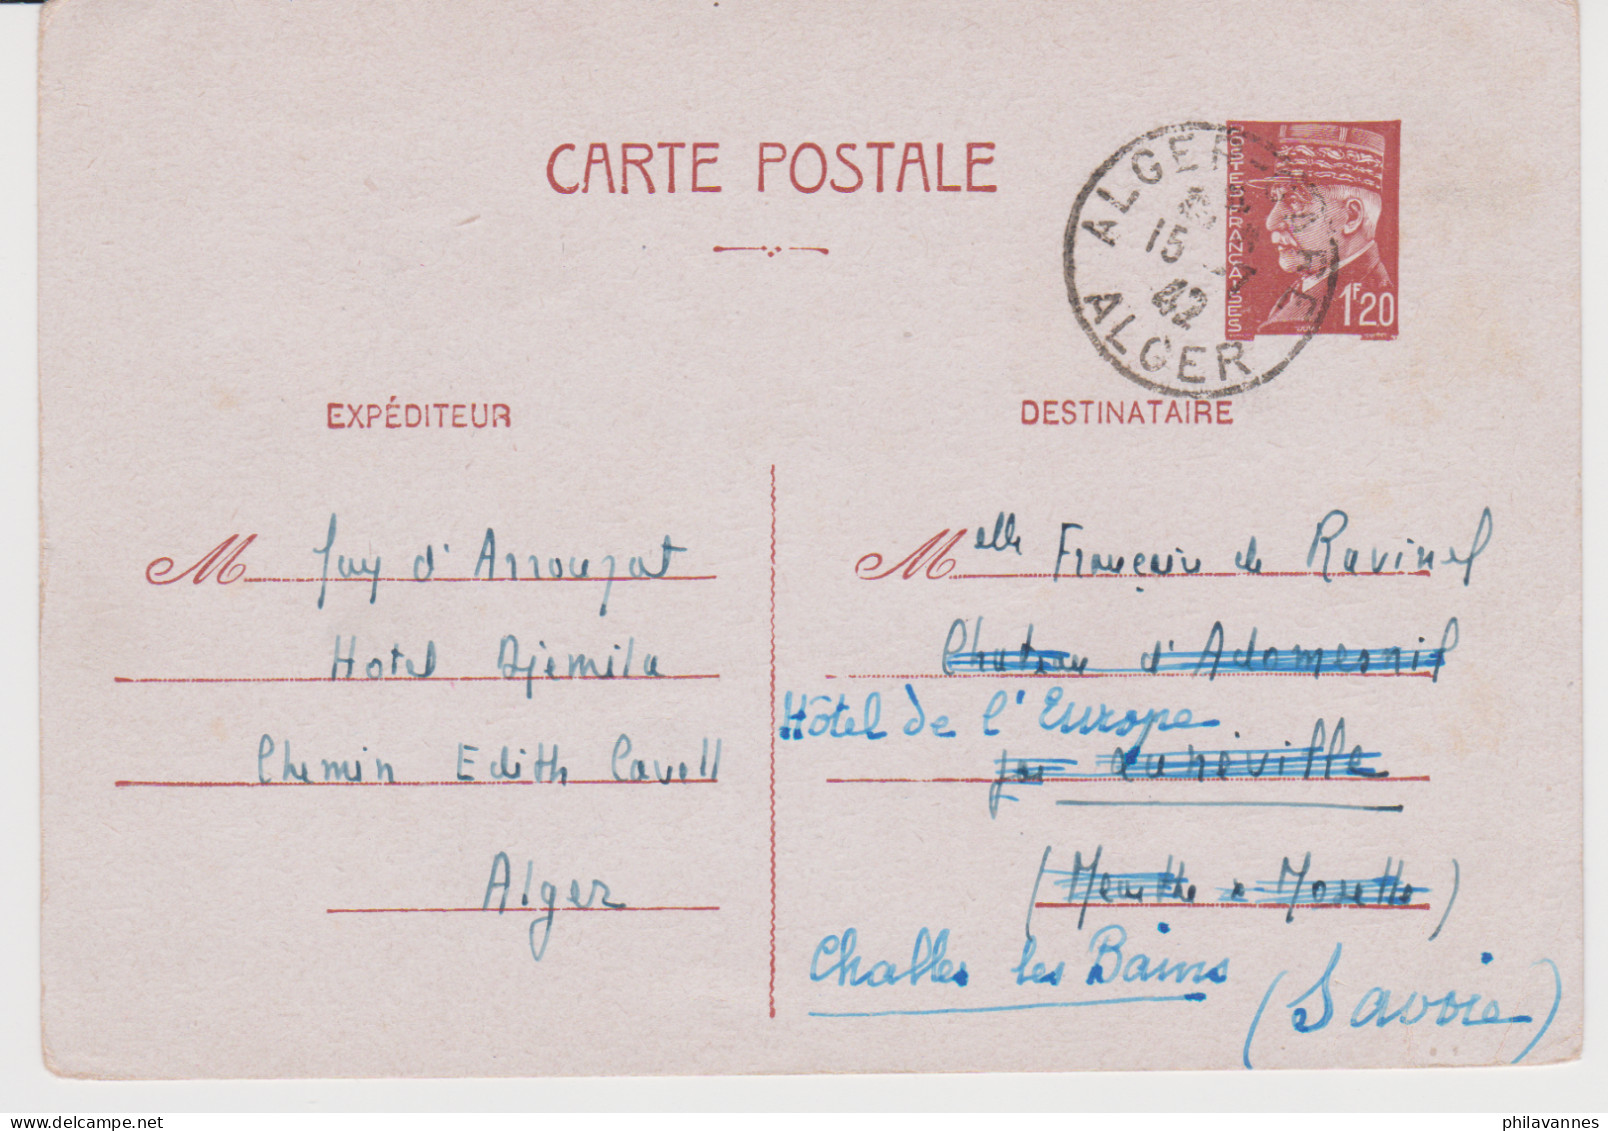 CARTE POSTALE
ALGER-BOURSE
15 -7
42
ALGER
POSTES FRANÇAISES
1F20
EXPÉDITEUR
DESTINATAIRE
M Guy d'Arrouzat
Hotel Djemila
Chemin Edith Cavell
Alger
Melle Françoise de Ravinel
Chateau d'Adomesnil
Hôtel de l'Europe
par Lunéville
(Meurthe & Moselle)
Challes les Bains
(Savoie)
philavannes